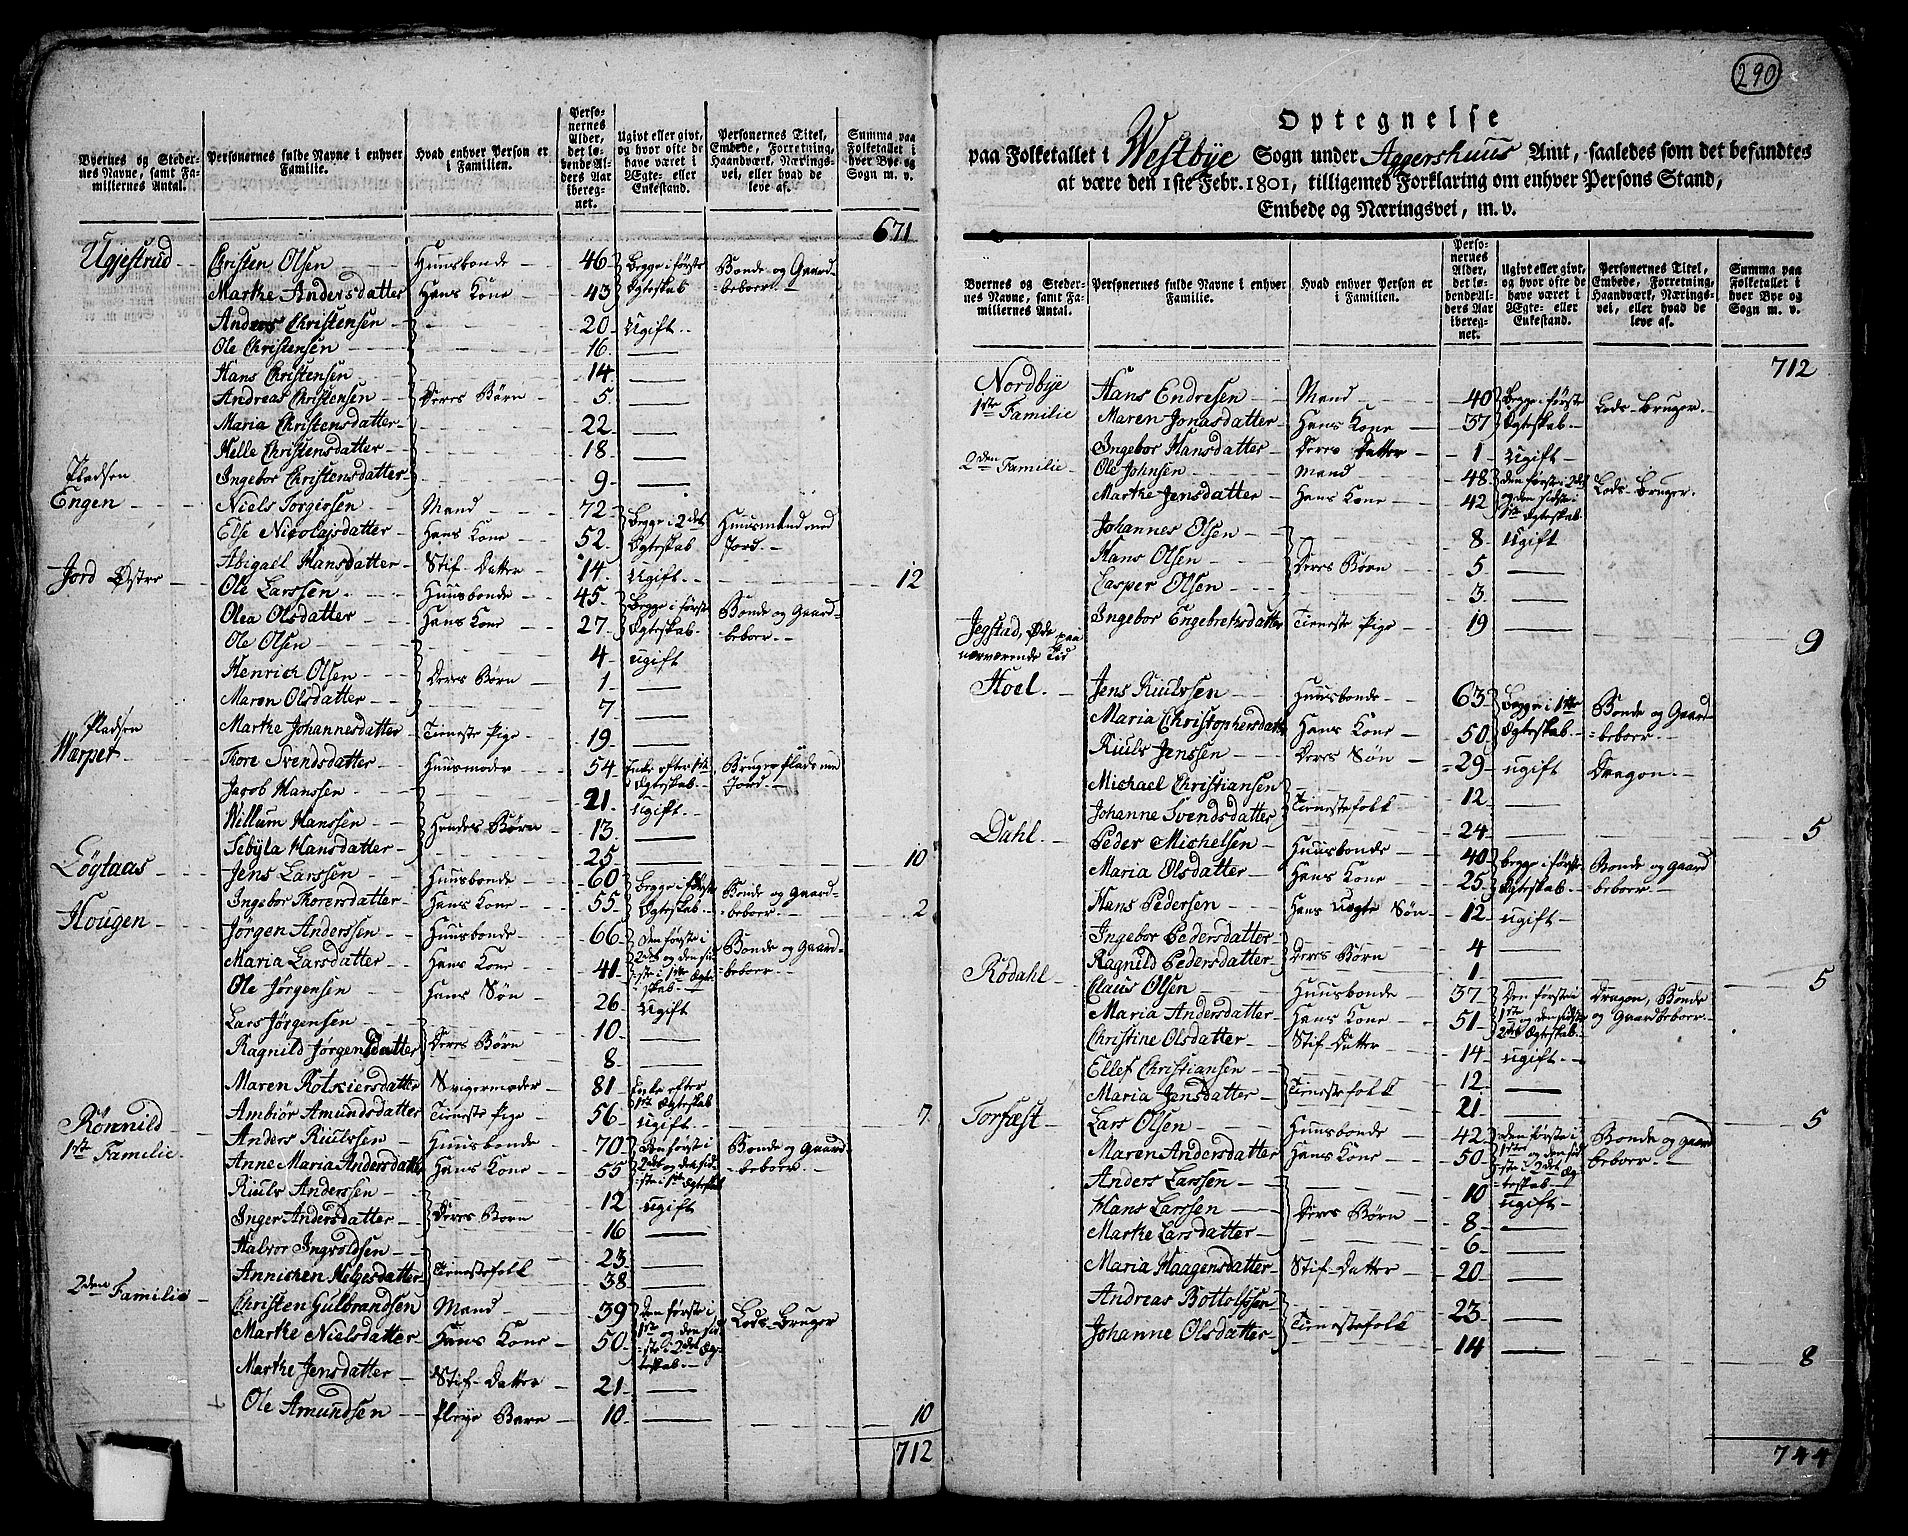 290
Byernes og Stedernes Navne, samt Familiernes Antal.
Personernes fulde Navne i enhver Familie.
Hvad enhver Person er i Familien.
Personernes Alder, det løbende Alders Aar iberegnet.
Ugivt eller givt, og hvor ofte de have været i Ægte- eller Enkestand.
Personernes Titel, Embede, Forretning, Haandværk, Næringsvei, eller hvad de leve af.
Summa paa Folketallet i hver Bye og Sogn m. v.
671
Ugjestrud Christen Olsen Huusbonde 46 Begge i første Bonde og Gaard-
Marthe Andersdatter Hans Kone 43 Ægteskab beboer.
Anders Christensen 20 Ugift
Ole Christensen 16
Hans Christensen 14
Andreas Christensen Deres Børn 5
Maria Christensdatter 22
Helle Christensdatter 18
Ingebor Christensdatter 9
Pladsen
Engen Niels Torgiersen Mand 72 Begge i 2det Huusmand med
Else Nicolajsdatter Hans Kone 52 Ægteskab Jord.
Abigael Hansdatter Stif-Datter 14 Ugift 12
Jord Østre Ole Larssen Huusbonde 45 Begge i første Bonde og Gaard-
Olea Olsdatter Hans Kone 27 Ægteskab beboer.
Ole Olsen 4 ugift
Henrich Olsen Deres Børn 1
Maren Olsdatter 7
Marthe Johannesdatter Tieneste Pige 19
Pladsen
Warpet Thore Svendsdatter Huusmoder 54 Enke efter 1ste Bruger Plads med
Jacob Hanssen 21 Ægteskab Jord.
Willum Hanssen Hendes Børn 13 Ugift
Sebyla Hansdatter 25 10
Løgtaas Jens Larssen Huusbonde 60 Begge i første Bonde og Gaard-
Ingebor Thorersdatter Hans Kone 55 Ægteskab beboer 2
Hougen Jørgen Anderssen Huusbonde 66 Den første i Bonde og Gaard-
Maria Larsdatter Hans Kone 41 2det og den sid- beboer
Ole Jørgensen Hans Søn 26 ste i 1ste Ægteskab Ugift
Lars Jørgensen 10
Ragnild Jørgensdatter Deres Børn 8
Maren Rotkiersdatter Svigermoder 81 Enke efter
Ambiør Amundsdatter Tieneste Pige 56 1ste Ægteskab ugift 7
Rønnild Anders Riulssen Huusbonde 70 Den første i Bonde og Gaard-
1ste Familie Anne Maria Andersdatter Hans Kone 55 2det og den sidste i 1ste Ægteskab beboer
Riuls Anderssen 12 ugift
Inger Andersdatter Deres Børn 16
Halvor Ingvoldsen 23
Annichen Helgesdatter Tienestefolk 38
2den Familie Christen Gulbrandsen Mand 39 Den første i Lods-Bruger
Marthe Nielsdatter Hans Kone 50 1ste og den sidste i 2det Ægteskab
Marthe Jensdatter Stif-Datter 21
Ole Amundsen Pleye Barn 10 10
712
Optegnelse
paa Folketallet i Westbye Sogn under Aggershuus Amt, saaledes som det befandtes
at være den 1ste Febr. 1801, tilligemed Forklaring om enhver Persons Stand,
Embede og Næringsvei, m. v.
Byernes og Stedernes Navne, samt Familiernes Antal.
Personernes fulde Navne i enhver Familie.
Hvad enhver Person er i Familien.
Personernes Alder, det løbende Alders Aar iberegnet.
Ugivt eller givt, og hvor ofte de have været i Ægte- eller Enkestand.
Personernes Titel, Embede, Forretning, Haandværk, Næringsvei, eller hvad de leve af.
Summa paa Folketallet i hver Bye og Sogn m. v.
712
Nordbye Hans Endresen Mand 40 Begge i første Lods-Bruger.
1ste Familie Maren Jonasdatter Hans Kone 37 Ægteskab
Ingebor Hansdatter Deres Datter 1 Ugift
2den Familie Ole Johnsen Mand 48 Den første i 2det Lods-Bruger.
Marthe Jensdatter Hans Kone 42 og den sidste i 1ste Ægteskab
Johannes Olsen 8 Ugift
Hans Olsen Deres Børn 5
Casper Olsen 3
Ingebor Engebretsdatter Tieneste Pige 19 9
Jegstad, Øde paa
nærværende Tid
Hoel. Jens Riulssen Huusbonde 63 Begge i 1ste Bonde og Gaard-
Maria Christophersdatter Hans Kone 50 Ægteskab beboer.
Riuls Jenssen Deres Søn 29 ugift Dragon.
Michael Christiansen 12
Johanne Svendsdatter Tienestefolk 24 5
Dahl. Peder Michelsen Huusbonde 40 begge i første Bonde og Gaard
Maria Olsdatter Hans Kone 25 Ægteskab beboer
Hans Pedersen Hans Uægte Søn 12 ugift
Ingebor Pedersdatter 4
Ragnild Pedersdatter Deres Børn 1 5
Rødahl Claus Olsen Huusbonde 37 Den første i Dragon, Bonde
Maria Andersdatter Hans Kone 51 1ste og den sidste 2det Ægteskab og Gaardbeboer
Christine Olsdatter Stif-Datter 14 ugift
Ellef Christiansen 12
Maria Jensdatter Tienestefolk 21 5
Torfæst Lars Olsen Huusbonde 42 Den første i Bonde og Gaard
Maren Andersdatter Hans Kone 50 1ste og den sidste i 2det Ægteskab beboer
Anders Larssen 10 ugift
Hans Larssen Deres Børn 8
Marthe Larsdatter 6
Maria Haagensdatter Stif-Datter 20
Andreas Bottolssen 23
Johanne Olsdatter Tienestefolk 14 8
744